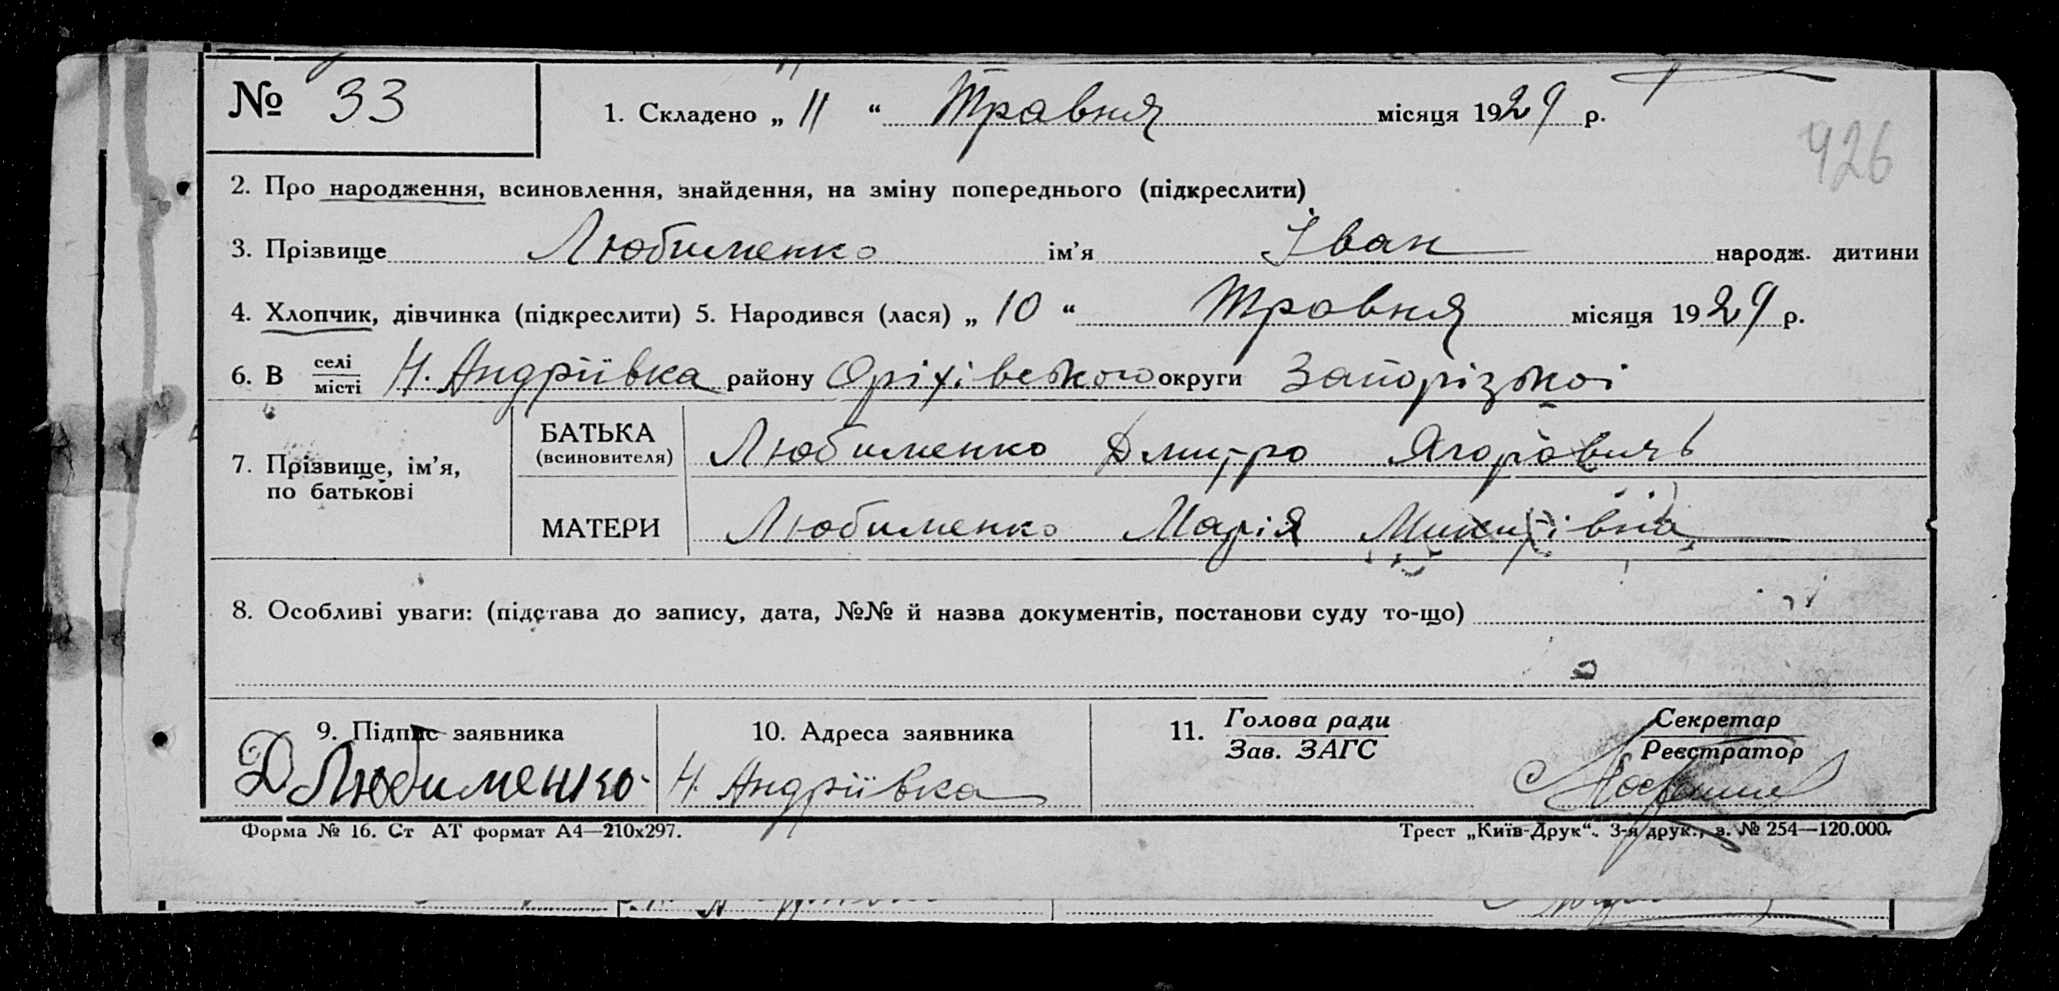 № 33 1. Складено „ 11 “ Травня місяця 1929 р.
426
2. Про народження, всиновлення, знайдення, на зміну попереднього (підкреслити)
3. Прізвище Любименко ім’я Іван народж. дитини
4. Хлопчик, дівчинка (підкреслити) 5. Народився (лася) „ 10 “ Травня місяця 1929 р.
6. В селі/місті Н. Андріївка району Оріхівського округи Запорізької
7. Прізвище, ім’я, по батькові
БАТЬКА (всиновителя) Любименко Дмитро Ягорович
МАТЕРИ Любименко Марія
8. Особливі уваги: (підстава до запису, дата, №№ й назва документів, постанови суду то-що)
9. Підпис заявника 10. Адреса заявника 11. Голова ради / Зав. ЗАГС Секретар / Реєстратор
Д Любименко Н. Андріївка
Форма № 16. Ст АТ формат А4—210х297. Трест „Київ-Друк“. 3-я друк., з. № 254—120.000.